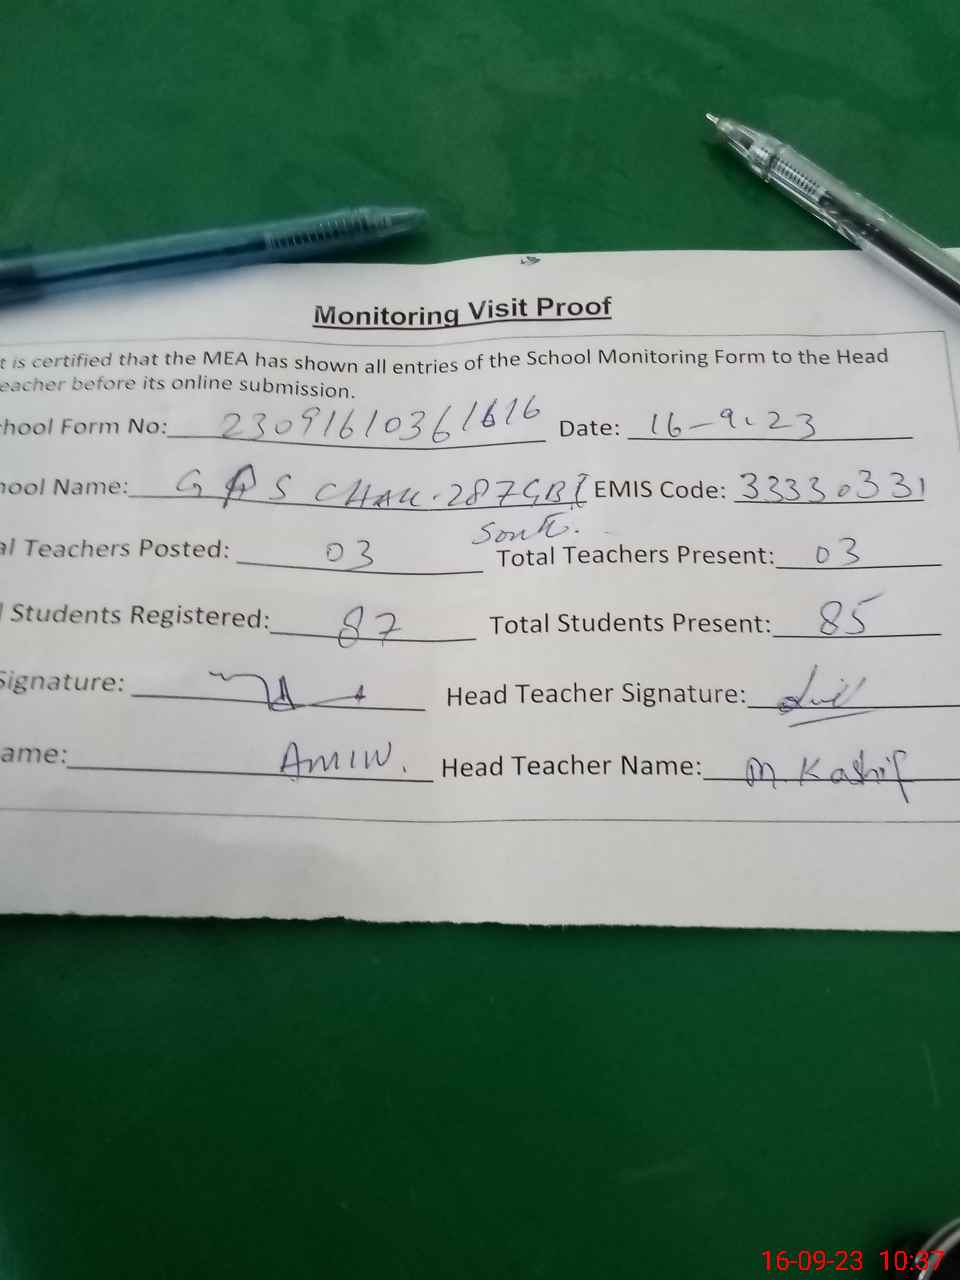 Monitoring Visit Proof
t is certified that the MEA has shown all entries of the School Monitoring Form to the Head
eacher before its online submission.
hool Form No: 23091610361616 Date: 16-9-23
ool Name: GPS CHAK-287GB I EMIS Code: 33330331
al Teachers Posted: 03 Total Teachers Present: 03
l Students Registered: 87 Total Students Present: 85
Signature: Head Teacher Signature:
ame: AMIN. Head Teacher Name: M. Kashif
16-09-23 10:37